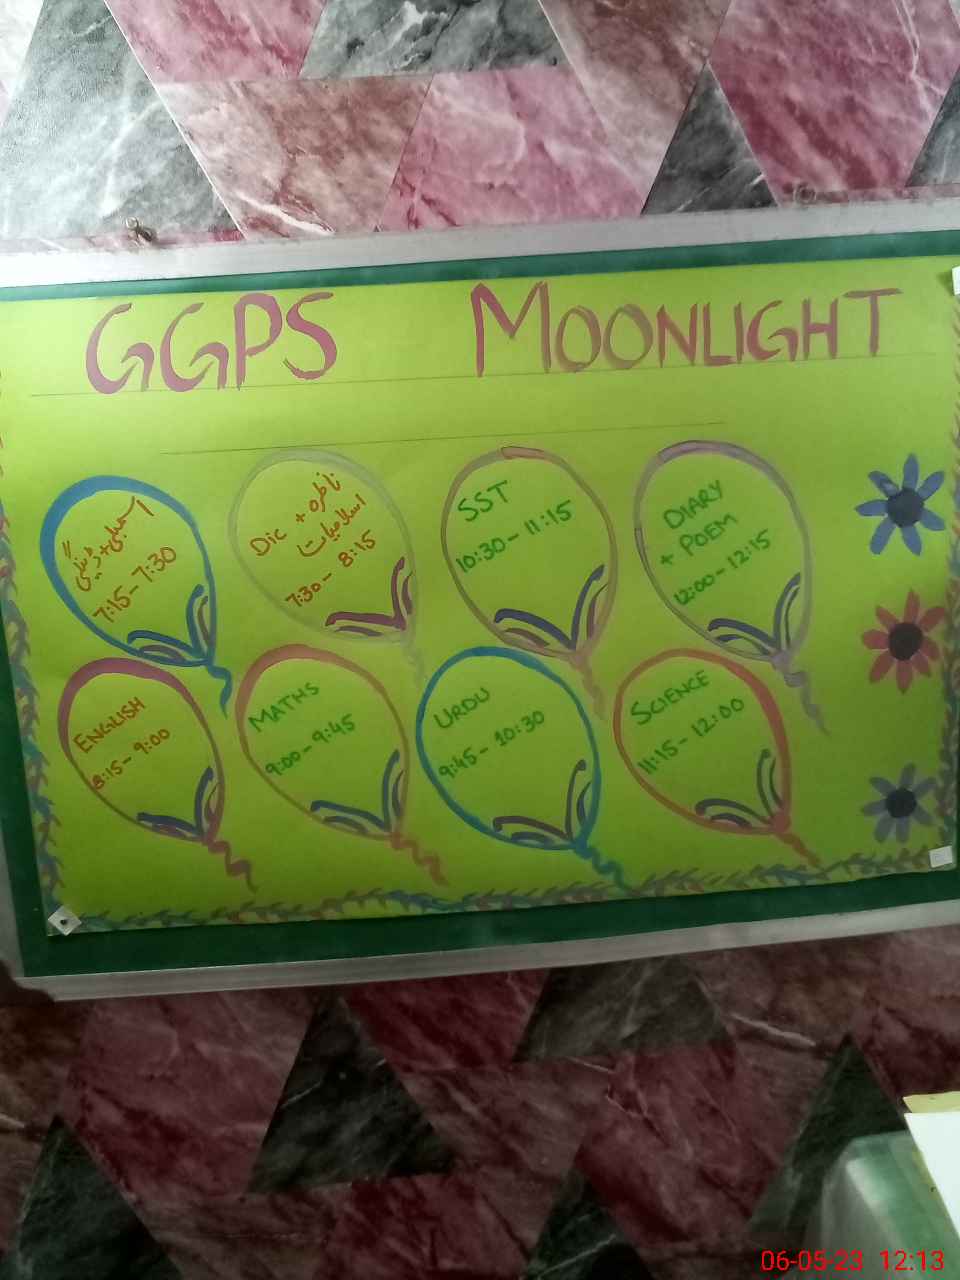 GGPS MOONLIGHT
اسمبلی + ڈینگی
7:15 - 7:30
ناظرہ + Dic
اسلامیات
7:30 - 8:15
SST
10:30 - 11:15
DIARY
+ POEM
12:00 - 12:15
ENGLISH
8:15 - 9:00
MATHS
9:00 - 9:45
URDU
9:45 - 10:30
SCIENCE
11:15 - 12:00
06-05-23 12:13